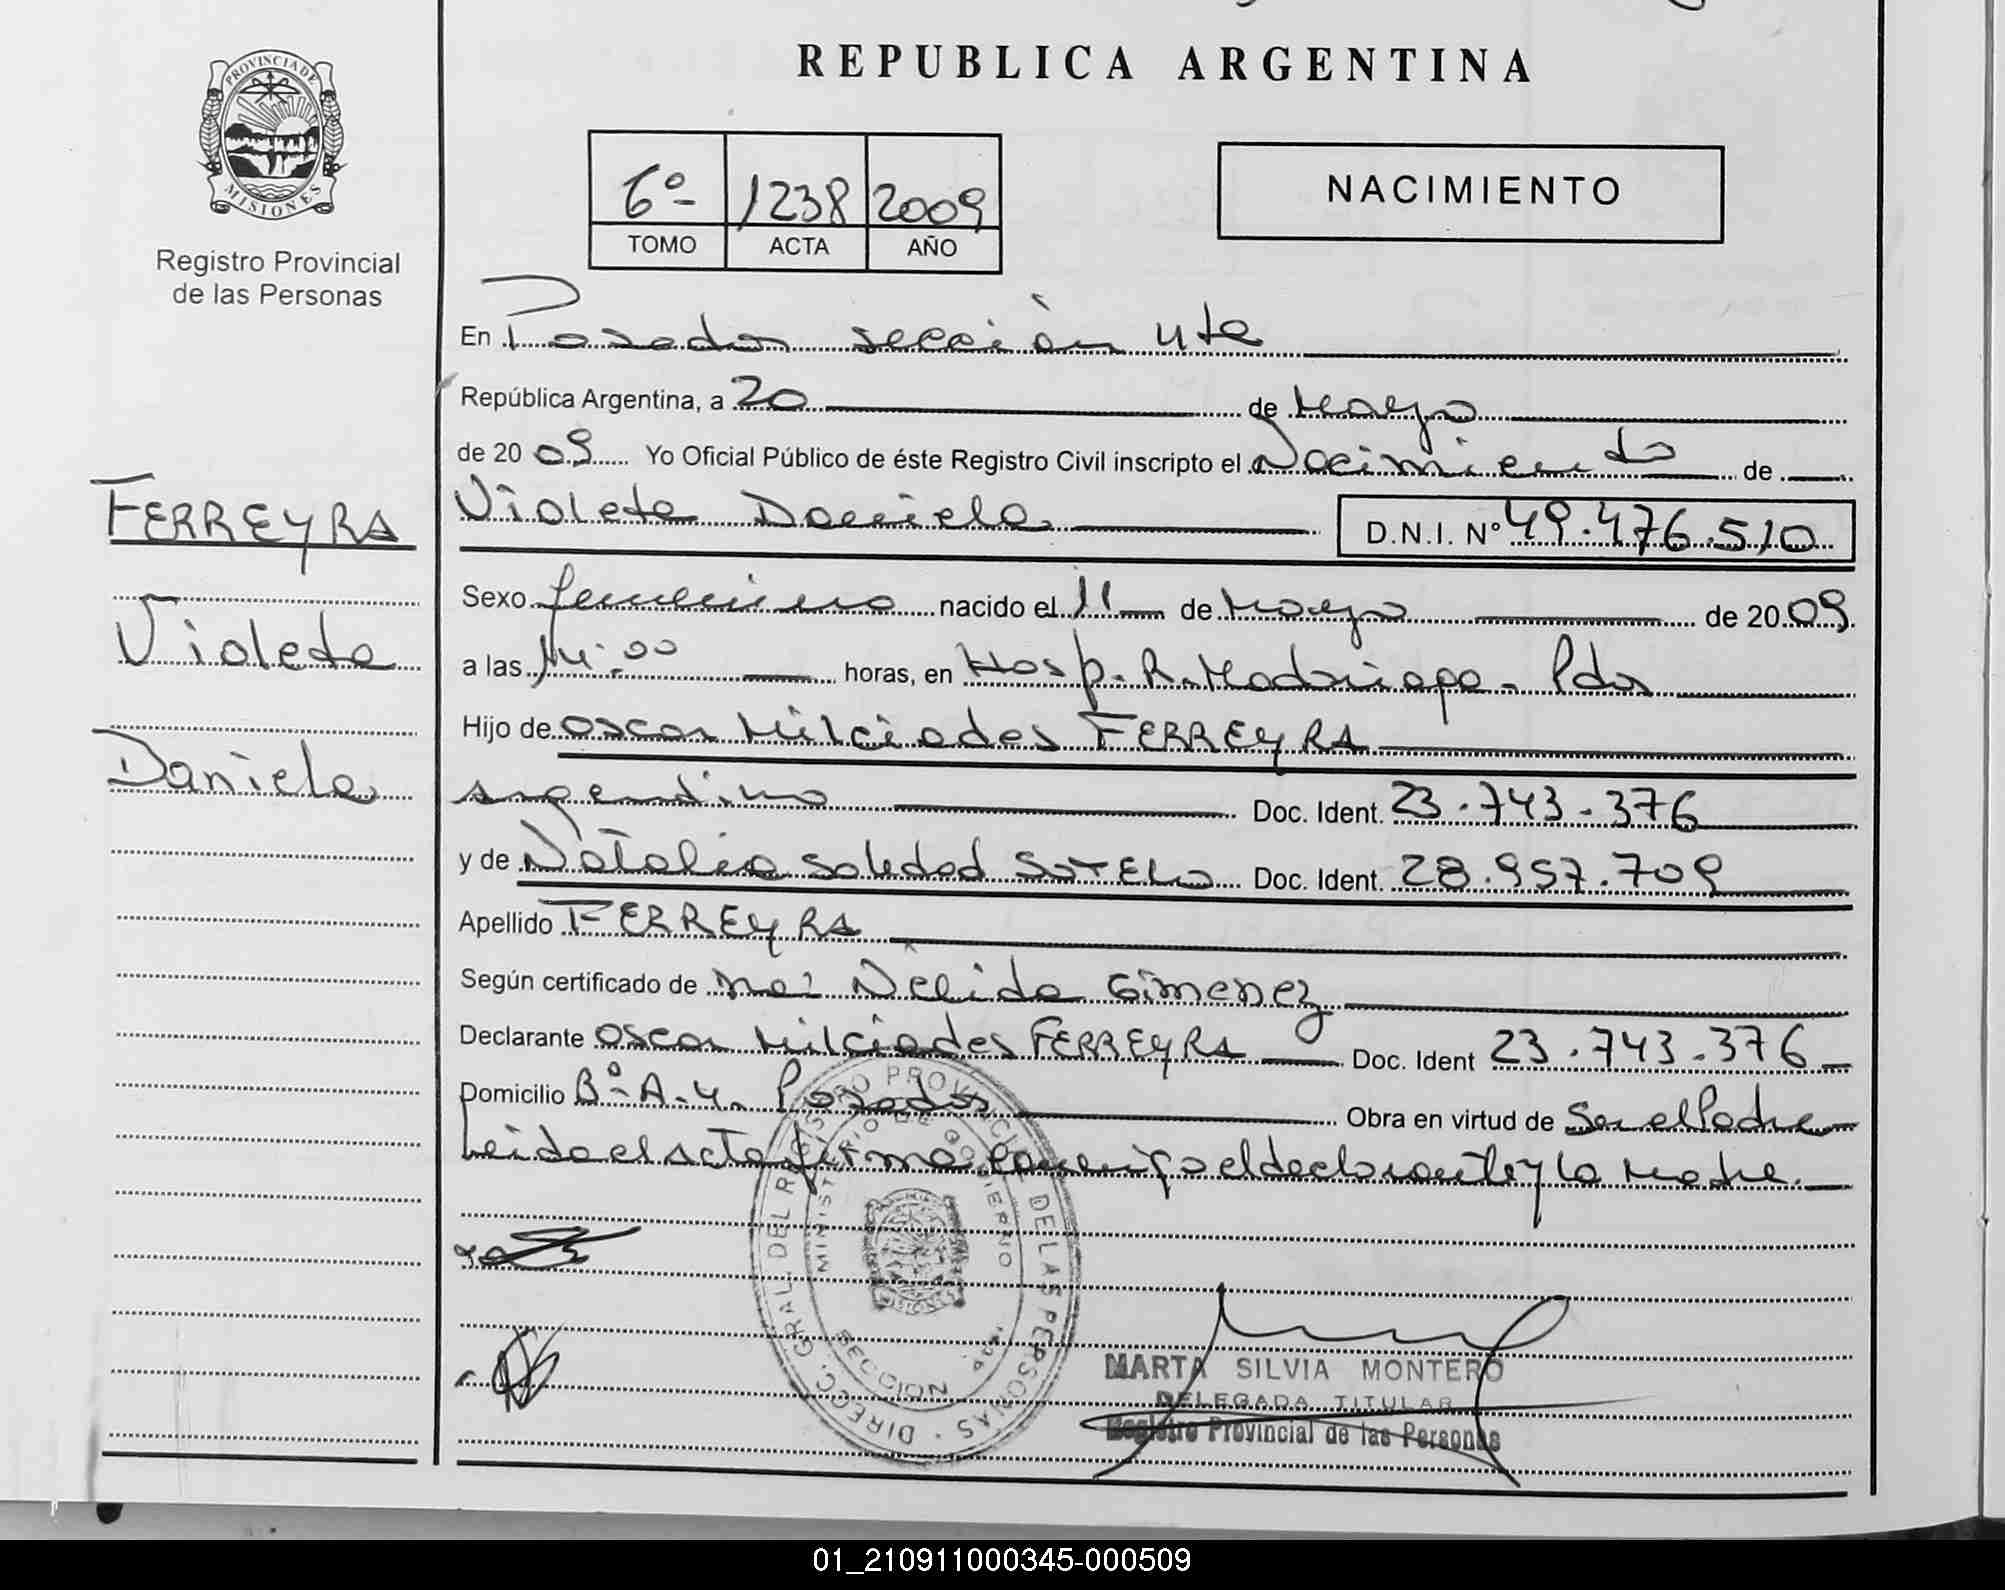 REPUBLICA ARGENTINA
PROVINCIA DE MISIONES
Registro Provincial
de las Personas
6º- 1238 2009
TOMO ACTA AÑO
NACIMIENTO
FERREYRA
Violeta
Daniela
En Posadas sección 4ta
República Argentina, a 20 de Mayo
de 20 09 Yo Oficial Público de éste Registro Civil inscripto el Nacimiento de
Violeta Daniela D.N.I. Nº 49.476.510
Sexo femenino nacido el 11 de Mayo de 20 09
a las 14:00 horas, en Hosp. R. Madariaga - Pdas
Hijo de Oscar Milciades FERREYRA
argentino Doc. Ident. 23.743.376
y de Natalia Soledad SOTELO Doc. Ident. 28.957.709
Apellido FERREYRA
Según certificado de Nélida Gimenez
Declarante Oscar Milciades FERREYRA Doc. Ident 23.743.376
Domicilio Bº A.4. Posadas Obra en virtud de Ser el Padre
Leida el acta firma conmigo el declarante y la Madre.
DIRECC. GRAL. DEL REGISTRO PROVINCIAL DE LAS PERSONAS
MINISTERIO DE GOBIERNO
SECCION
MARTA SILVIA MONTERO
DELEGADA TITULAR
Registro Provincial de las Personas
01_210911000345-000509